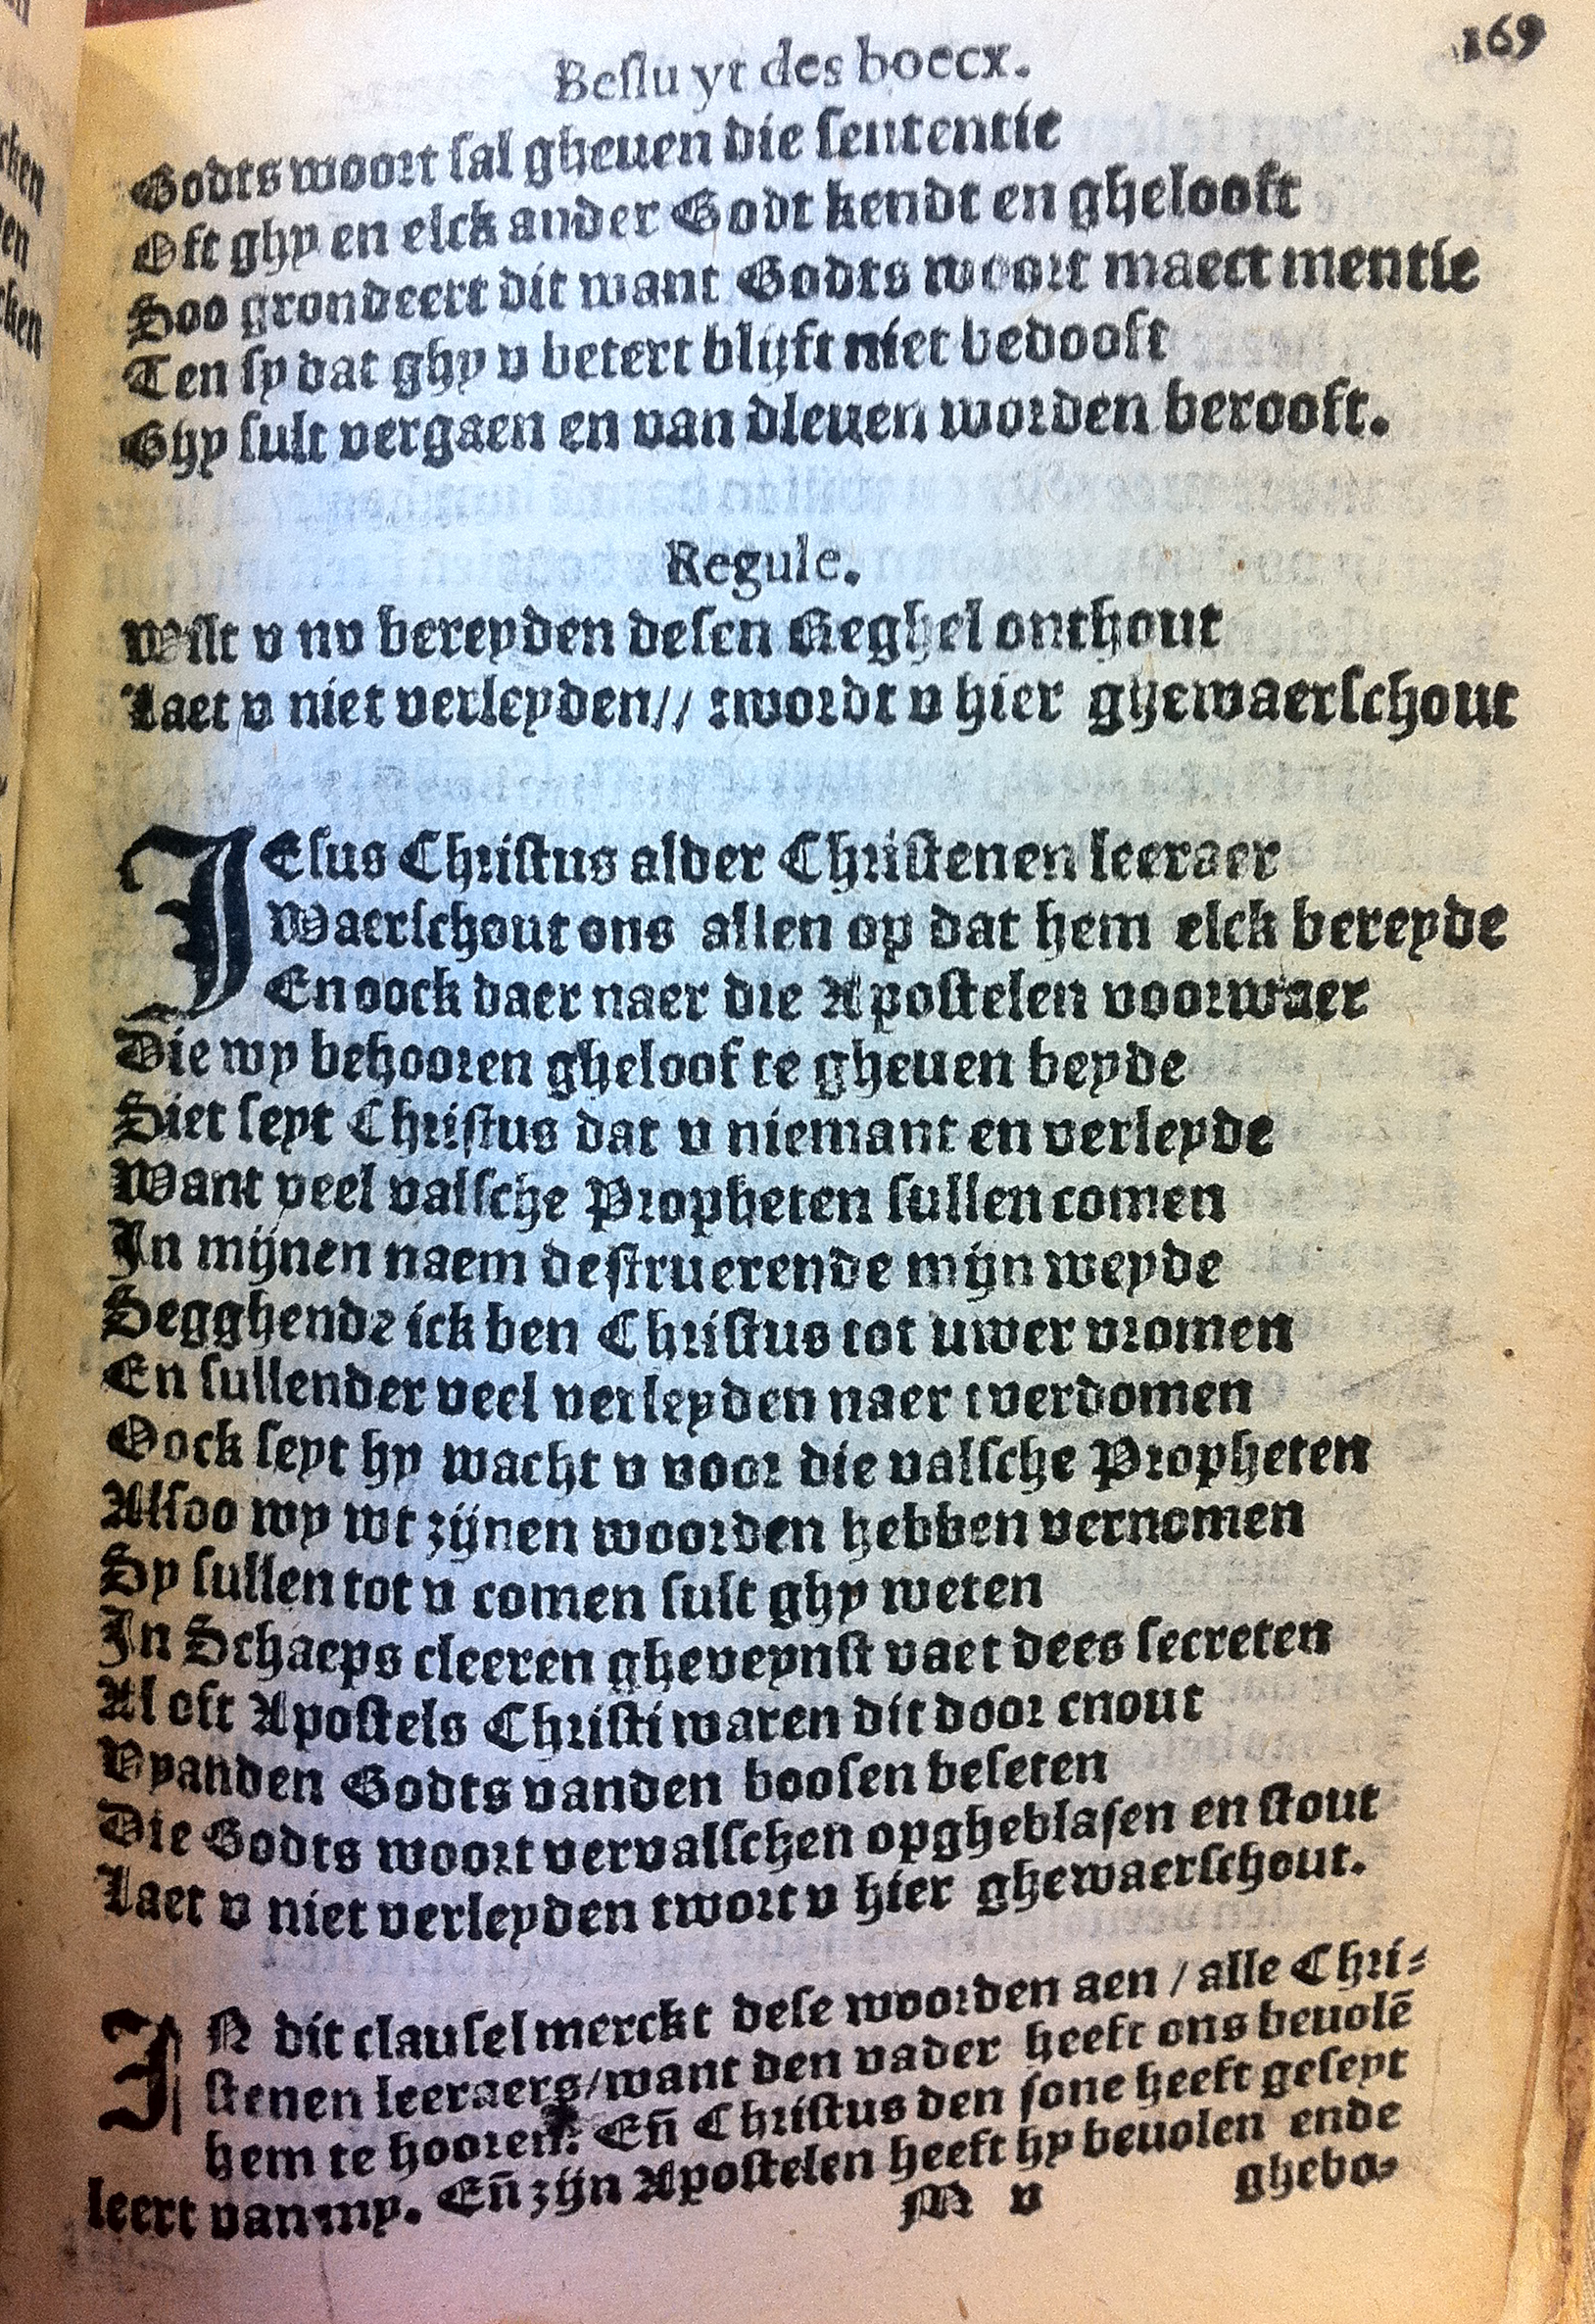 Besluyt des boecx.
169
Godts woort sal gheuen die sententie
Oft ghy en elck ander Godt kendt en ghelooft
Soo grondeert dit want Godts woort maect mentie
Ten sy dat ghy v betert blijft niet bedooft
Ghy sult vergaen en van dleuen worden berooft.
Regule.
Wilt v nv bereyden desen Reghel onthout
Laet v niet verleyden// twordt v hier ghewaerschout
IEsus Christus alder Christenen leeraer
Waerschout ons allen op dat hem elck bereyde
En oock daer naer die Apostelen voorwaer
Die wy behooren gheloof te gheuen beyde
Siet seyt Christus dat v niemant en verleyde
Want veel valsche Propheten sullen comen
In mijnen naem destruerende mijn weyde
Segghende ick ben Christus tot uwer vromen
En sullender veel verleyden naer tverdomen
Oock seyt hy wacht v voor die valsche Propheten
Alsoo wy wt zijnen woorden hebben vernomen
Sy sullen tot v comen sult ghy weten
In Schaeps cleeren gheveynst vaet dees secreten
Al oft Apostels Christi waren dit door cnout
Vyanden Godts vanden boosen beseten
Die Godts woort vervalschen opgheblasen en stout
Laet v niet verleyden twort v hier ghewaerschout.
IN dit clausel merckt dese woorden aen / alle Chri⸗
stenen leeraers/want den vader heeft ons beuolē
hem te hooren: Eñ Christus den sone heeft geseyt
leert van my. Eñ zijn Apostelen heeft hy beuolen ende
M v
ghebo⸗